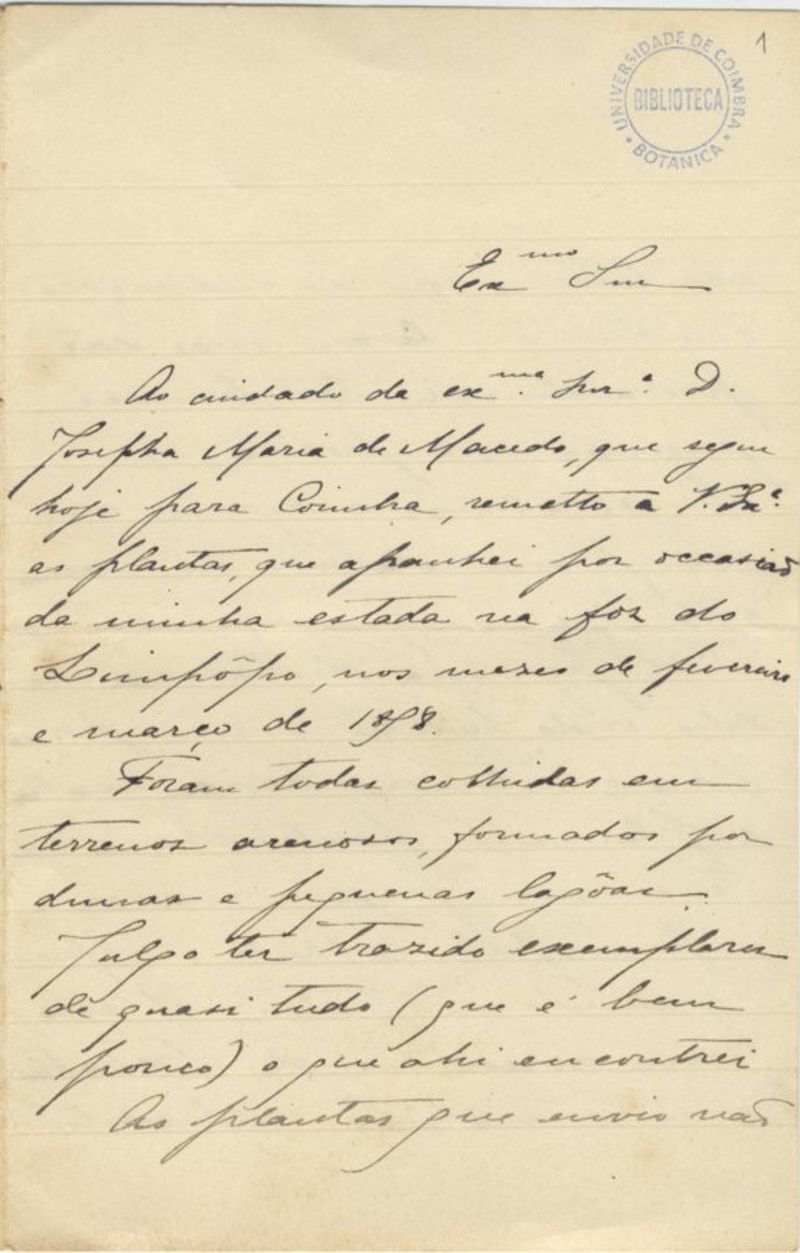 1
UNIVERSIDADE DE COIMBRA
BIBLIOTECA
BOTANICA
Ex.mo Snr
Ao cuidado da ex.ma Snr.a D.
Josepha Maria de Macedo, que segue
hoje para Coimbra, remetto a V. Ex.a
as plantas, que apanhei por occasião
da minha estada na foz do
Limpôpo, nos mezes de fevereiro
e março de 1898.
Foram todas colhidas em
terrenos arenosos, formados por
dunas e pequenas lagôas.
Julgo ter trazido exemplares
de quasi tudo (que é bem
pouco) o que ahi encontrei
As plantas que envio não